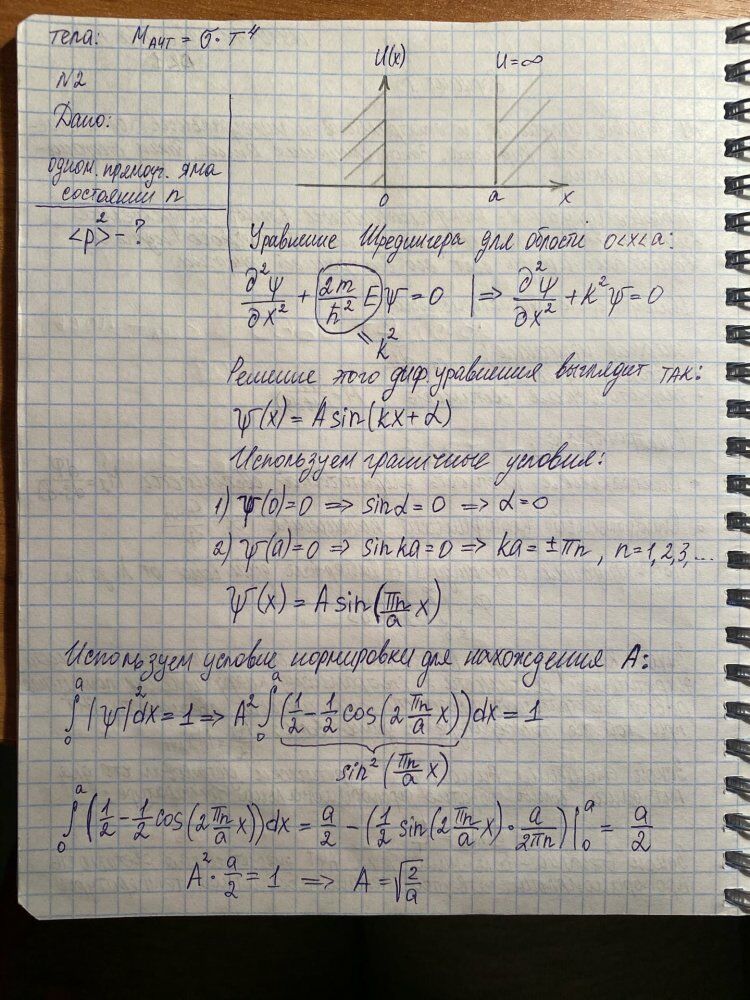 тела: Mачт = σ·T⁴
N2
Дано:
одном. прямоуг. яма
состоянии n
<p²> - ?
U(x) U=∞
0 a x
Уравнение Шредингера для области 0<x<a:
∂²ψ/∂x² + (2m/ħ² E)ψ = 0 | => ∂²ψ/∂x² + k²ψ = 0
= k²
Решение этого диф.уравнения выглядит так:
ψ(x) = A sin(kx + α)
Используем граничные условия:
1) ψ(0)=0 => sin α = 0 => α=0
2) ψ(a)=0 => sin ka = 0 => ka = ±πn, n=1,2,3,...
ψ(x) = A sin(πn/a x)
Используем условие нормировки для нахождения A:
∫₀ᵃ |ψ|²dx = 1 => A² ∫₀ᵃ (1/2 - 1/2 cos(2 πn/a x))dx = 1
sin²(πn/a x)
∫₀ᵃ (1/2 - 1/2 cos(2 πn/a x))dx = a/2 - (1/2 sin(2 πn/a x) · a/2πn)|₀ᵃ = a/2
A² · a/2 = 1 => A = √(2/a)